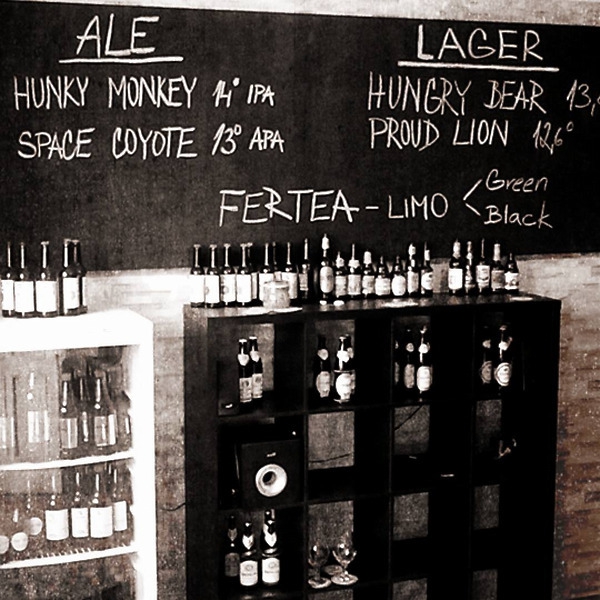 ALE
HUNKY MONKEY 14° IPA
SPACE COYOTE 13° APA
LAGER
HUNGRY BEAR 13,
PROUD LION 12,6°
FERTEA - LIMO
Green
Black